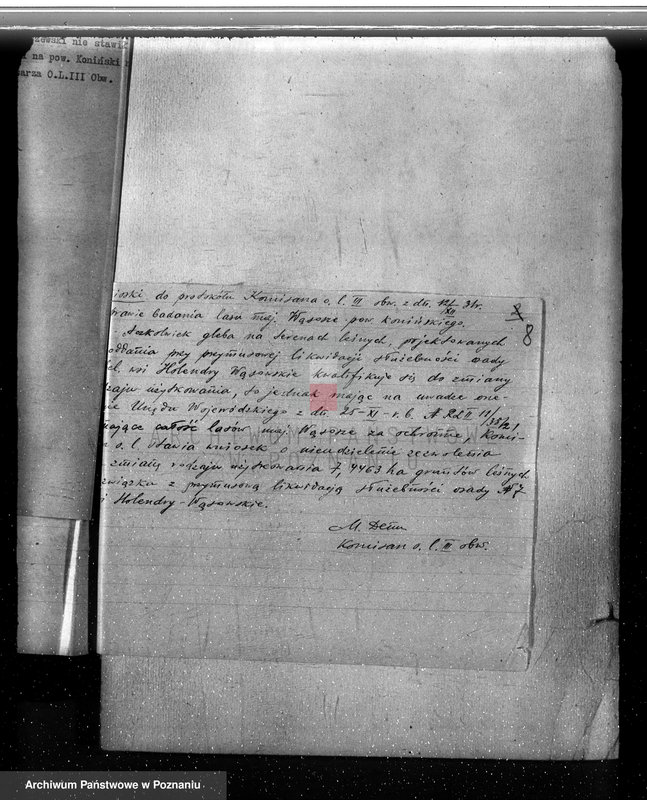 zewski nie stawił
na pow. Koniński
arza O.L.III Obw.
ioski do protokółu Komisarza o. l. III obw. z dn. 12/XII 31r.
rawie badania lasu maj. Wąsosze pow. konińskiego.
8
Aczkolwiek gleba na terenach leśnych, projektowanych
oddania przy przymusowej likwidacji służebności osady
wsi Holendry Wąsowskie kwalifikuje się do zmiany
zaju użytkowania, to jednak mając na uwadze orze-
nie Urzędu Wojewódzkiego z dn. 25-XI-r.b.
nające całość lasów maj. Wąsosze za ochronne, Komi-
o. l. stawia wniosek o nieudzielenie zezwolenia
zmianę rodzaju użytkowania 7,4463 ha gruntów leśnych
związku z przymusową likwidacją służebności osady № 7
i Holendry-Wąsowskie.
M.
Komisarz o. l. III obw.
ARCHIWUM PAŃSTWOWE
W POZNANIU
Archiwum Państwowe w Poznaniu